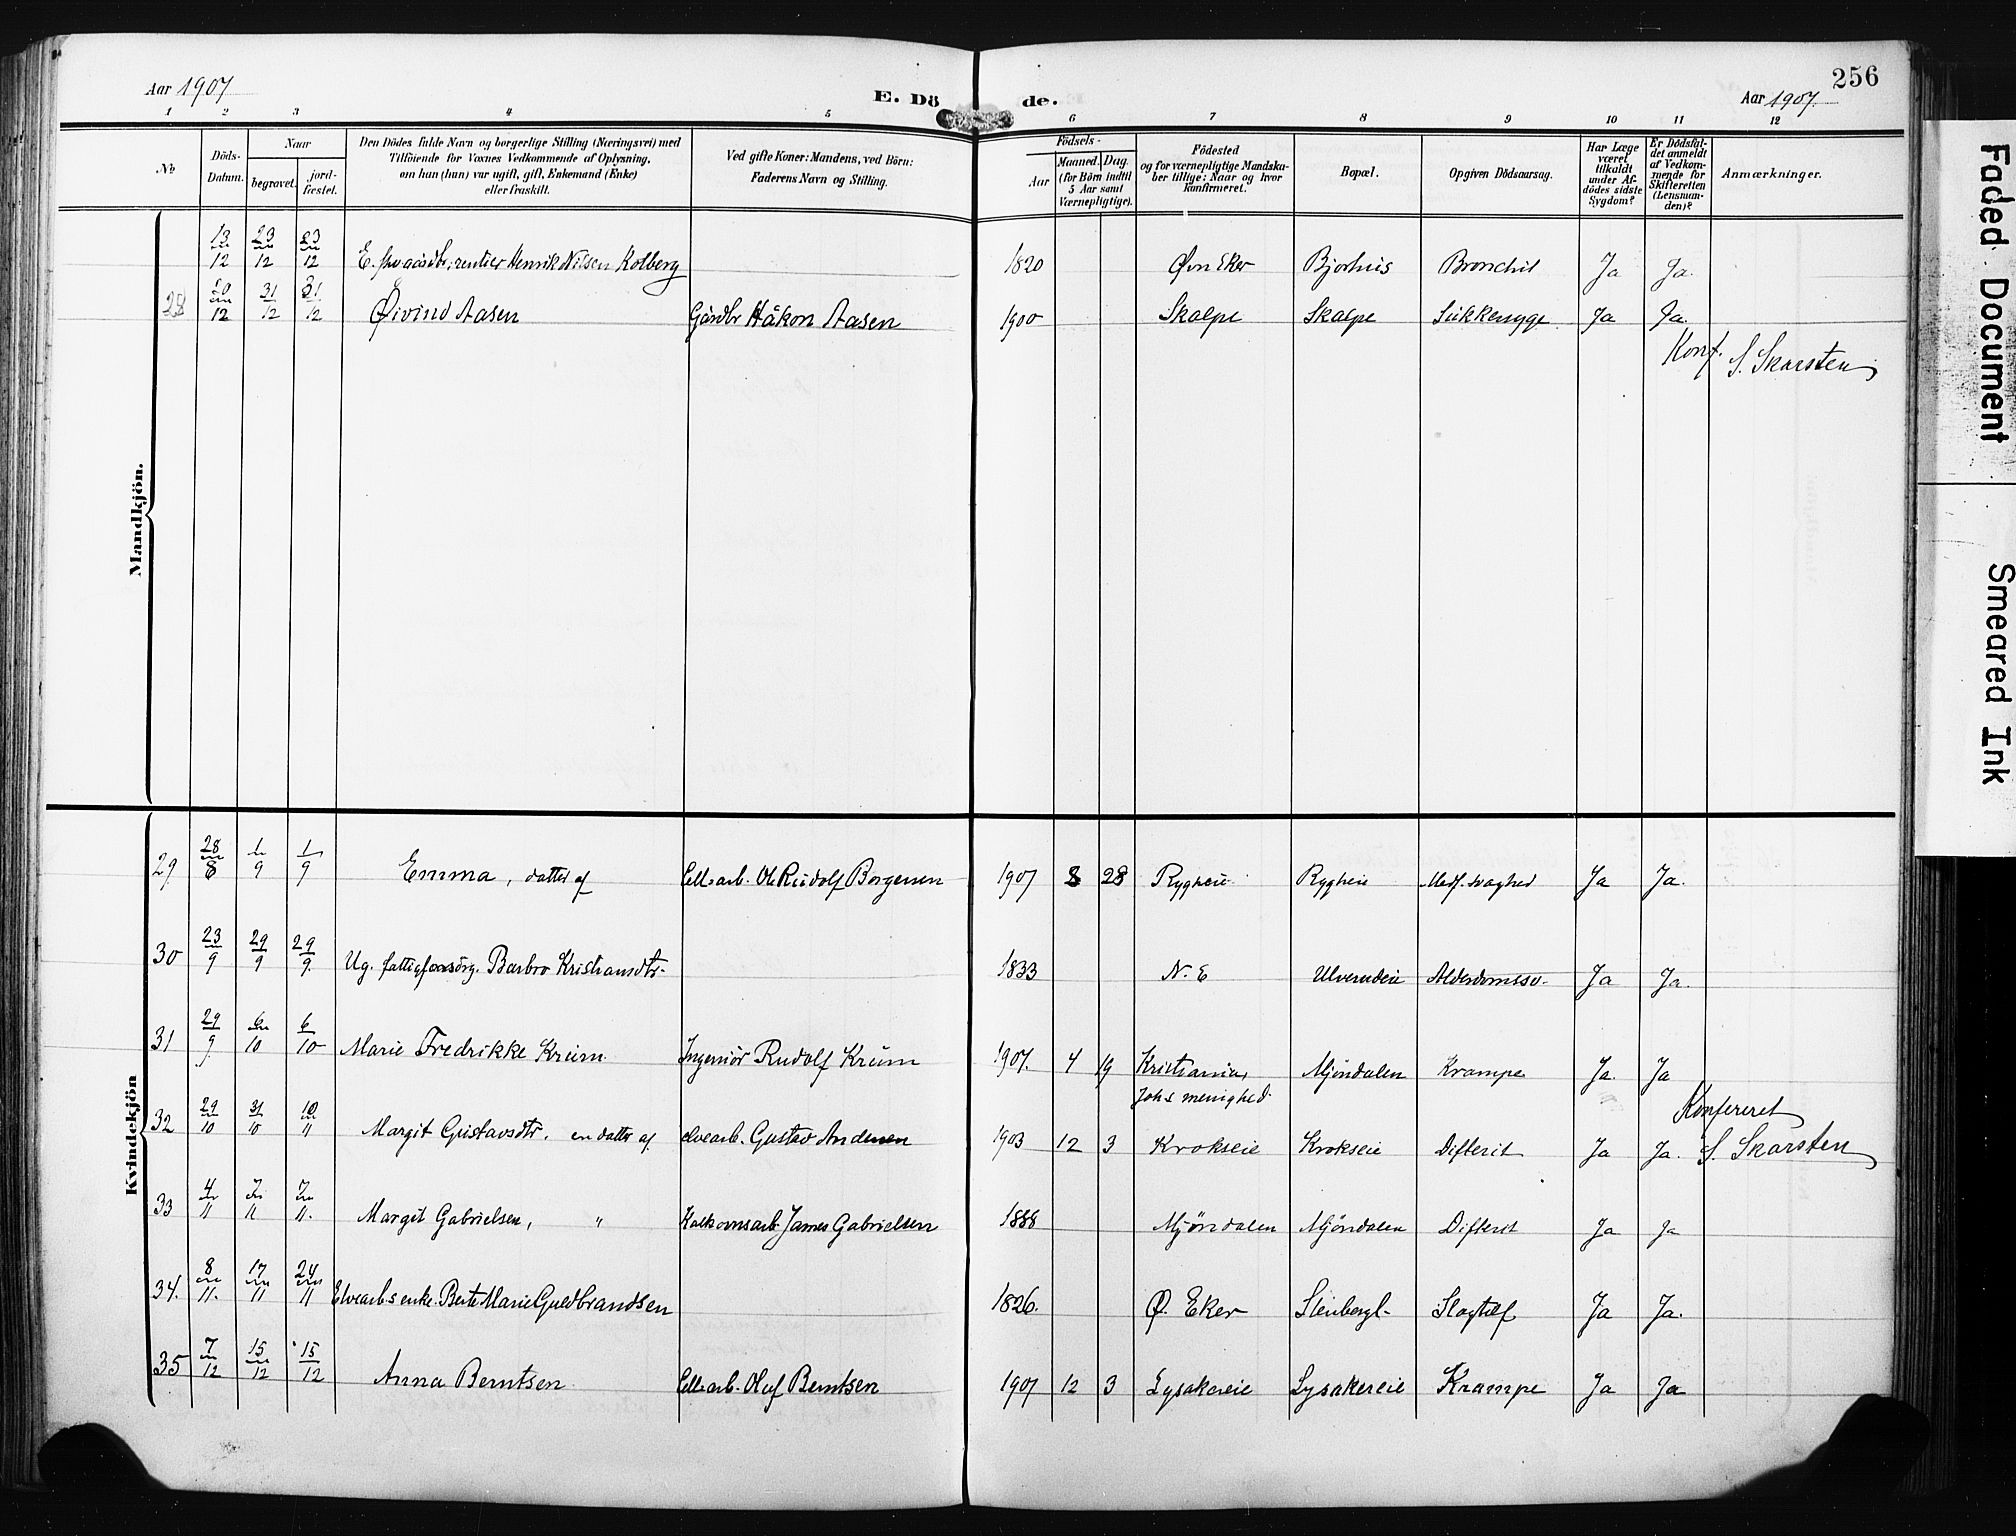 Aar 1907
E. Dö de.
Aar 1907.
256
1 2 3 4 5 6 7 8 9 10 11 12
No
Döds-Datum.
Naar
begravet.
jord-fæstet.
Den Dödes fulde Navn og borgerlige Stilling (Næringsvei) med
Tilföiende for Voxnes Vedkommende af Oplysning,
om han (hun) var ugift, gift, Enkemand (Enke)
eller fraskilt.
Ved gifte Koner: Mandens, ved Börn:
Faderens Navn og Stilling.
Födsels-
Aar
Maaned.
Dag.
(for Börn indtil
5 Aar samt
Værnepligtige).
Födested
og for værnepligtige Mandska-
ber tillige: Naar og hvor
konfirmeret.
Bopæl.
Opgiven Dödsaarsag.
Har Læge
været
tilkaldt
under Af-
dödes sidste
Sygdom?
Er Dödsfal-
det anmeldt
af Vedkom-
mende for
Skifteretten
(Lensman-
den)?
Anmærkninger.
Mandkjön.
13/12 23/12 23/12 E. fhv gårdbr, rentier Henrik Nilsen Kolberg 1820 Øvr Eker Bjorhus Bronchit Ja Ja.
28 20/12 31/12 31/12 Øivind Aasen Gårdbr Håkon Aasen 1900 Skalpe Skalpe Sukkersyge Ja Ja.
Konf. S. Skarsten
Kvindekjön
29 28/8 1/9 1/9 Emma, datter af Cell.arb. Ole Rudolf Borgersen 1907 8 28 Rygheie Rygheie Medf. svaghed Ja Ja.
30 23/9 29/9 29/9 Ug. fattigforsörg. Barbro Kristiansdtr. 1833 N. E Ulverudeie Alderdomssv. Ja Ja.
31 29/9 6/10 6/10 Marie Fredrikke Krum Ingeniör Rudolf Krum 1907. 4 19 Kristiania, Mjöndalen Krampe Ja Ja
Johs menighed.
Konfereret
32 29/10 31/10 10/11 Margit Gustavsdtr. en datter af elvearb. Gustav Andersen 1903 12 3 Krokseie Krokseie Difterit Ja Ja. S. Skarsten
33 4/11 7/11 7/11. Margit Gabrielsen, " Kalkovnsarb. James Gabrielsen 1888 Mjöndalen Mjöndalen Difterit Ja Ja
34. 8/11. 17/11 24/11 Elvearb.s enke. Berte Marie Guldbrandsen 1826. Ø. Eker Stenbergl. Slagtilf Ja Ja.
35 7/12 15/12 15/12 Anna Berntsen Cell.arb. Oluf Berntsen 1907 12 3 Lysakereie Lysakereie Krampe Ja Ja
Faded Document
Smeared Ink